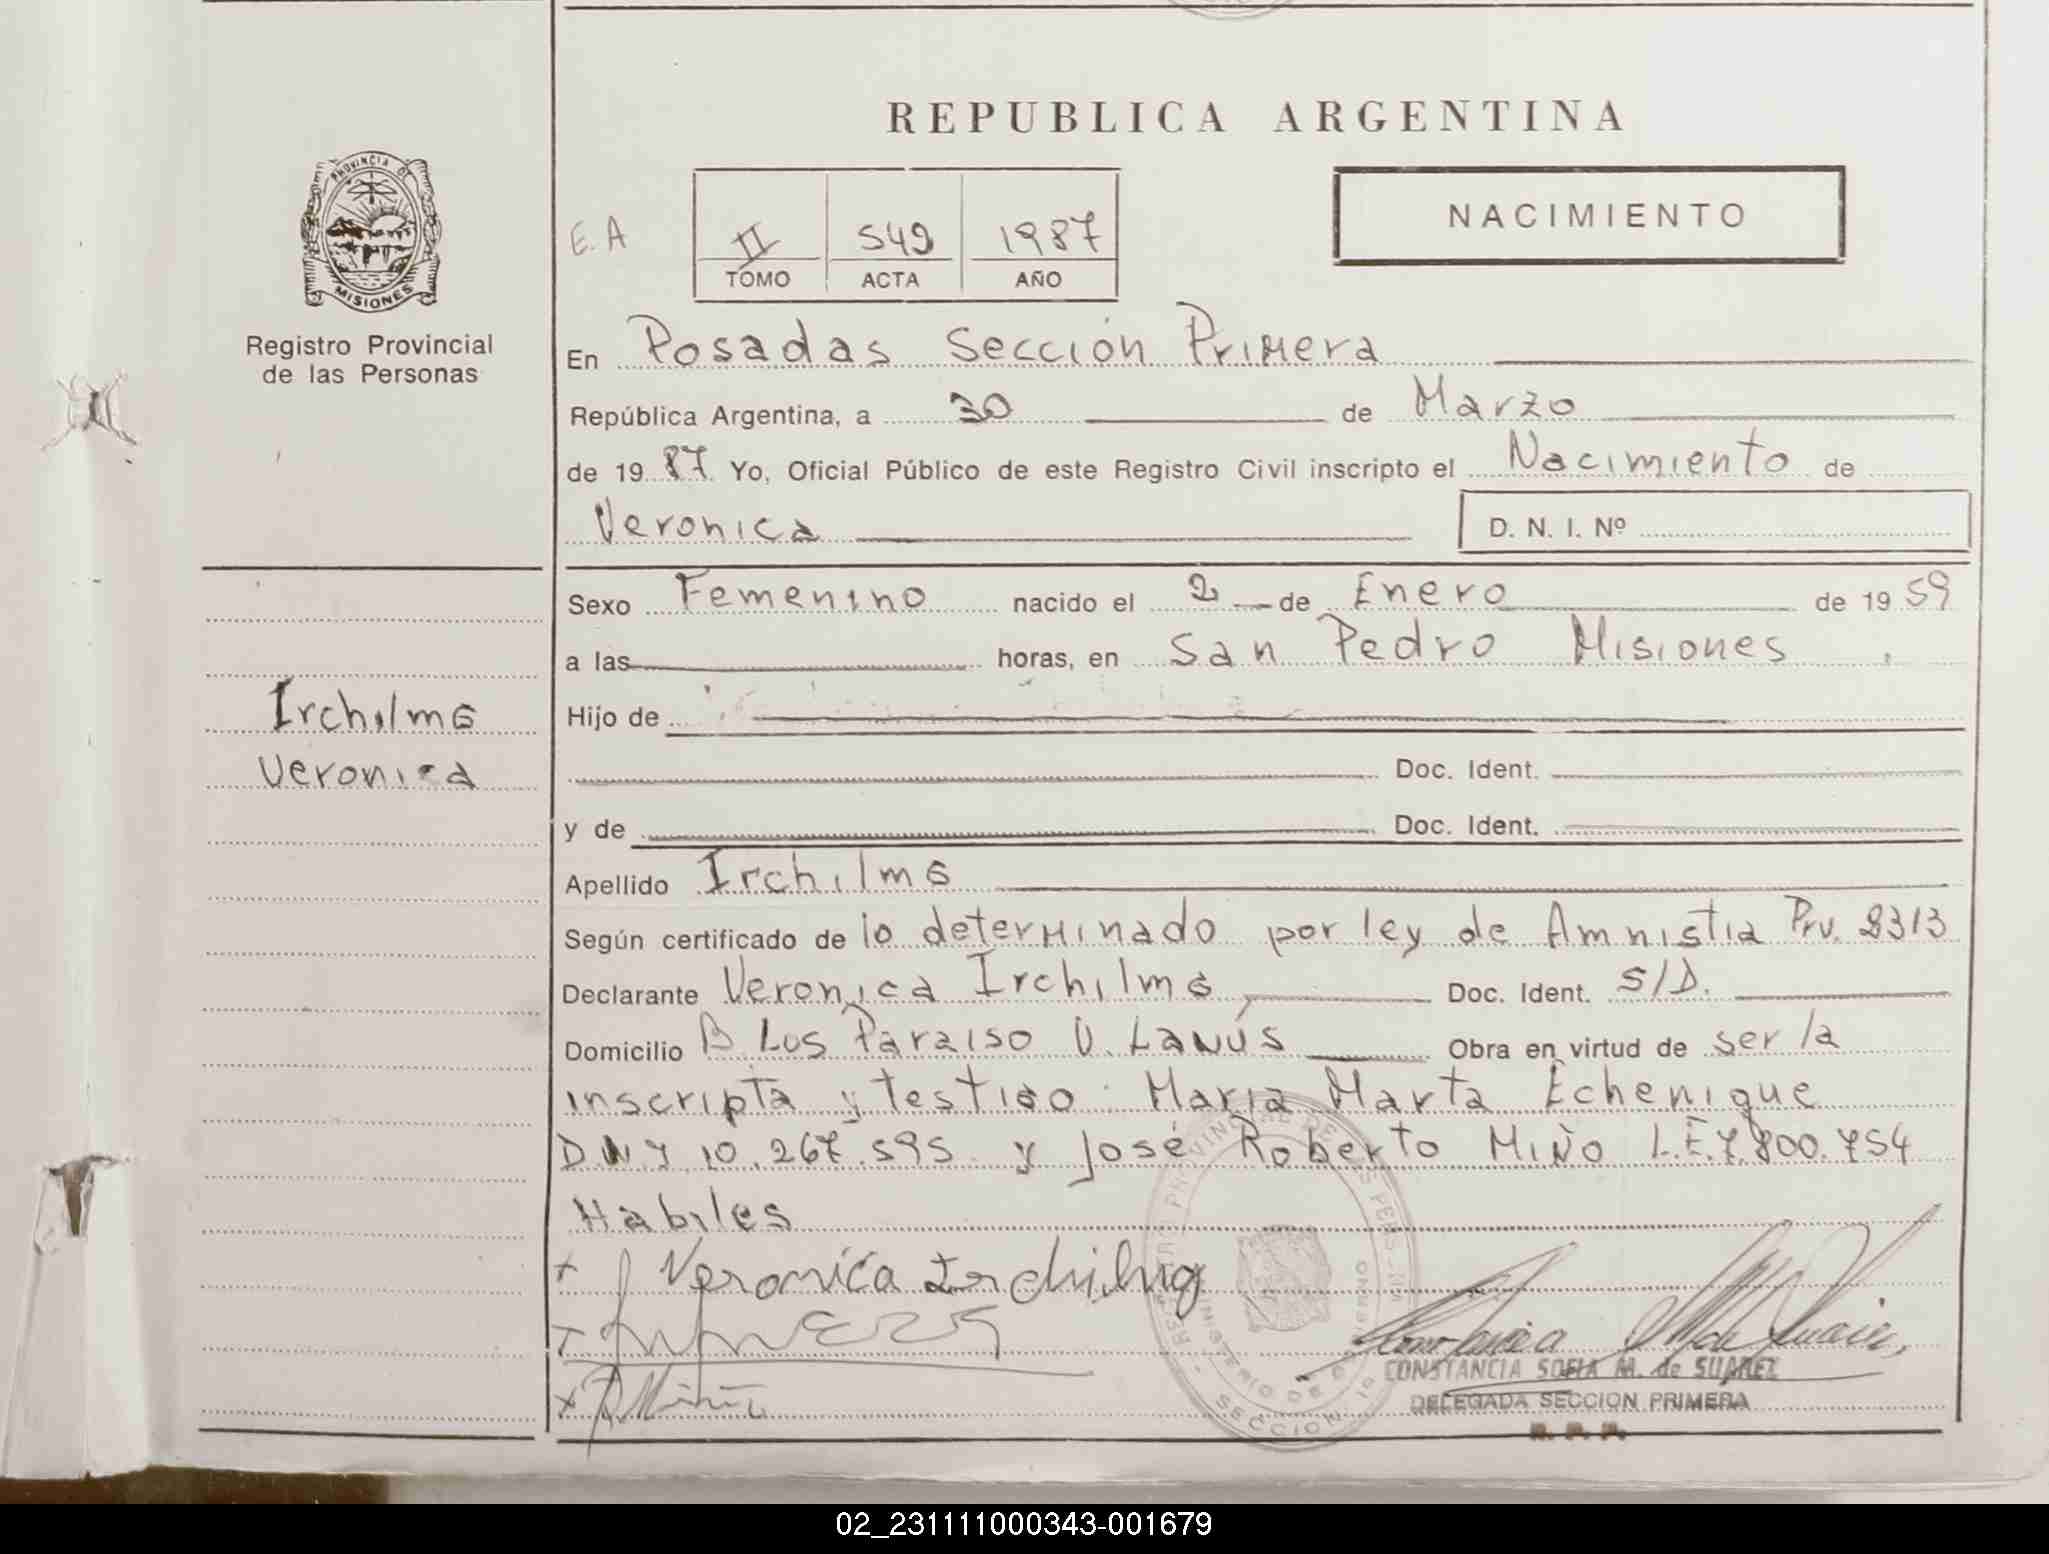 REPUBLICA ARGENTINA
PROVINCIA DE
MISIONES
Registro Provincial
de las Personas
E.A
II 549 1987
TOMO ACTA AÑO
NACIMIENTO
En Posadas Sección Primera
República Argentina, a 30 de Marzo
de 1987 Yo, Oficial Público de este Registro Civil inscripto el Nacimiento de
Veronica D. N. I. Nº
Sexo Femenino nacido el 2 de Enero de 1959
a las horas, en San Pedro Misiones
Hijo de
Doc. Ident.
y de Doc. Ident.
Irchilmg
Veronica
Apellido Irchilmg
Según certificado de lo determinado por ley de Amnistia Prv. 2313
Declarante Veronica Irchilmg Doc. Ident. S/D.
Domicilio B Los Paraiso V. Lanús Obra en virtud de ser la
inscripta y testigo: Maria Marta Echenique
DNY 10.267.595 y José Roberto Miño L.E.7.800.754
Habiles
x Veronica Irchilmg
CONSTANCIA SOFIA M. de SUAREZ
DELEGADA SECCION PRIMERA
R. P. P.
02_231111000343-001679